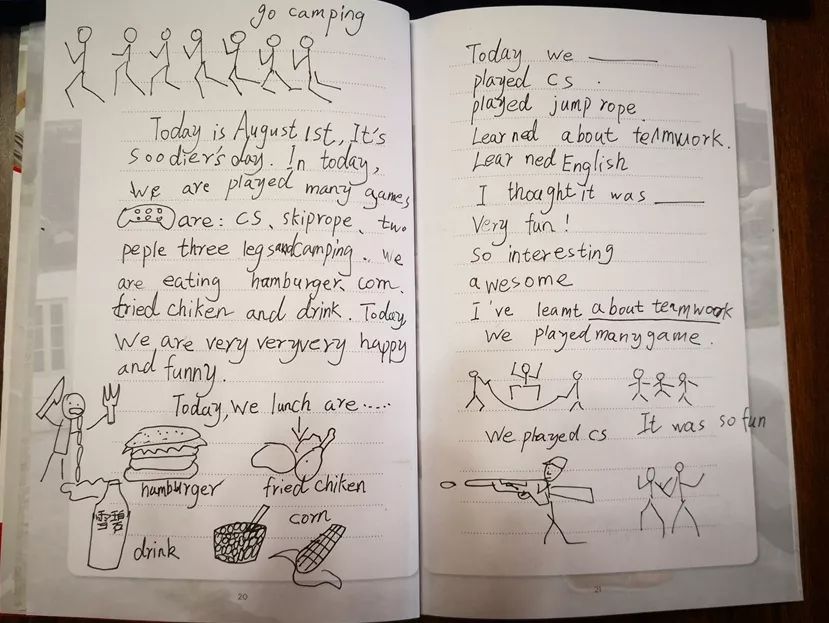 go camping
Today is August 1st, It's
soodier's day. In today,
we are played many games
are: CS、skiprope、two
peple three legs and camping. we
are eating hamburger、corn、
fried chiken and drink. Today,
we are very veryvery happy
and funny.
Today, we lunch are.....
hamburger
fried chiken
雪碧
drink
corn
20
Today we ______
played CS .
played jump rope.
Learned about teamwork.
Learned English
I thought it was ______
Very fun!
so interesting
awesome
I've learnt about teamwook
We played many game.
We played CS
It was so fun
21